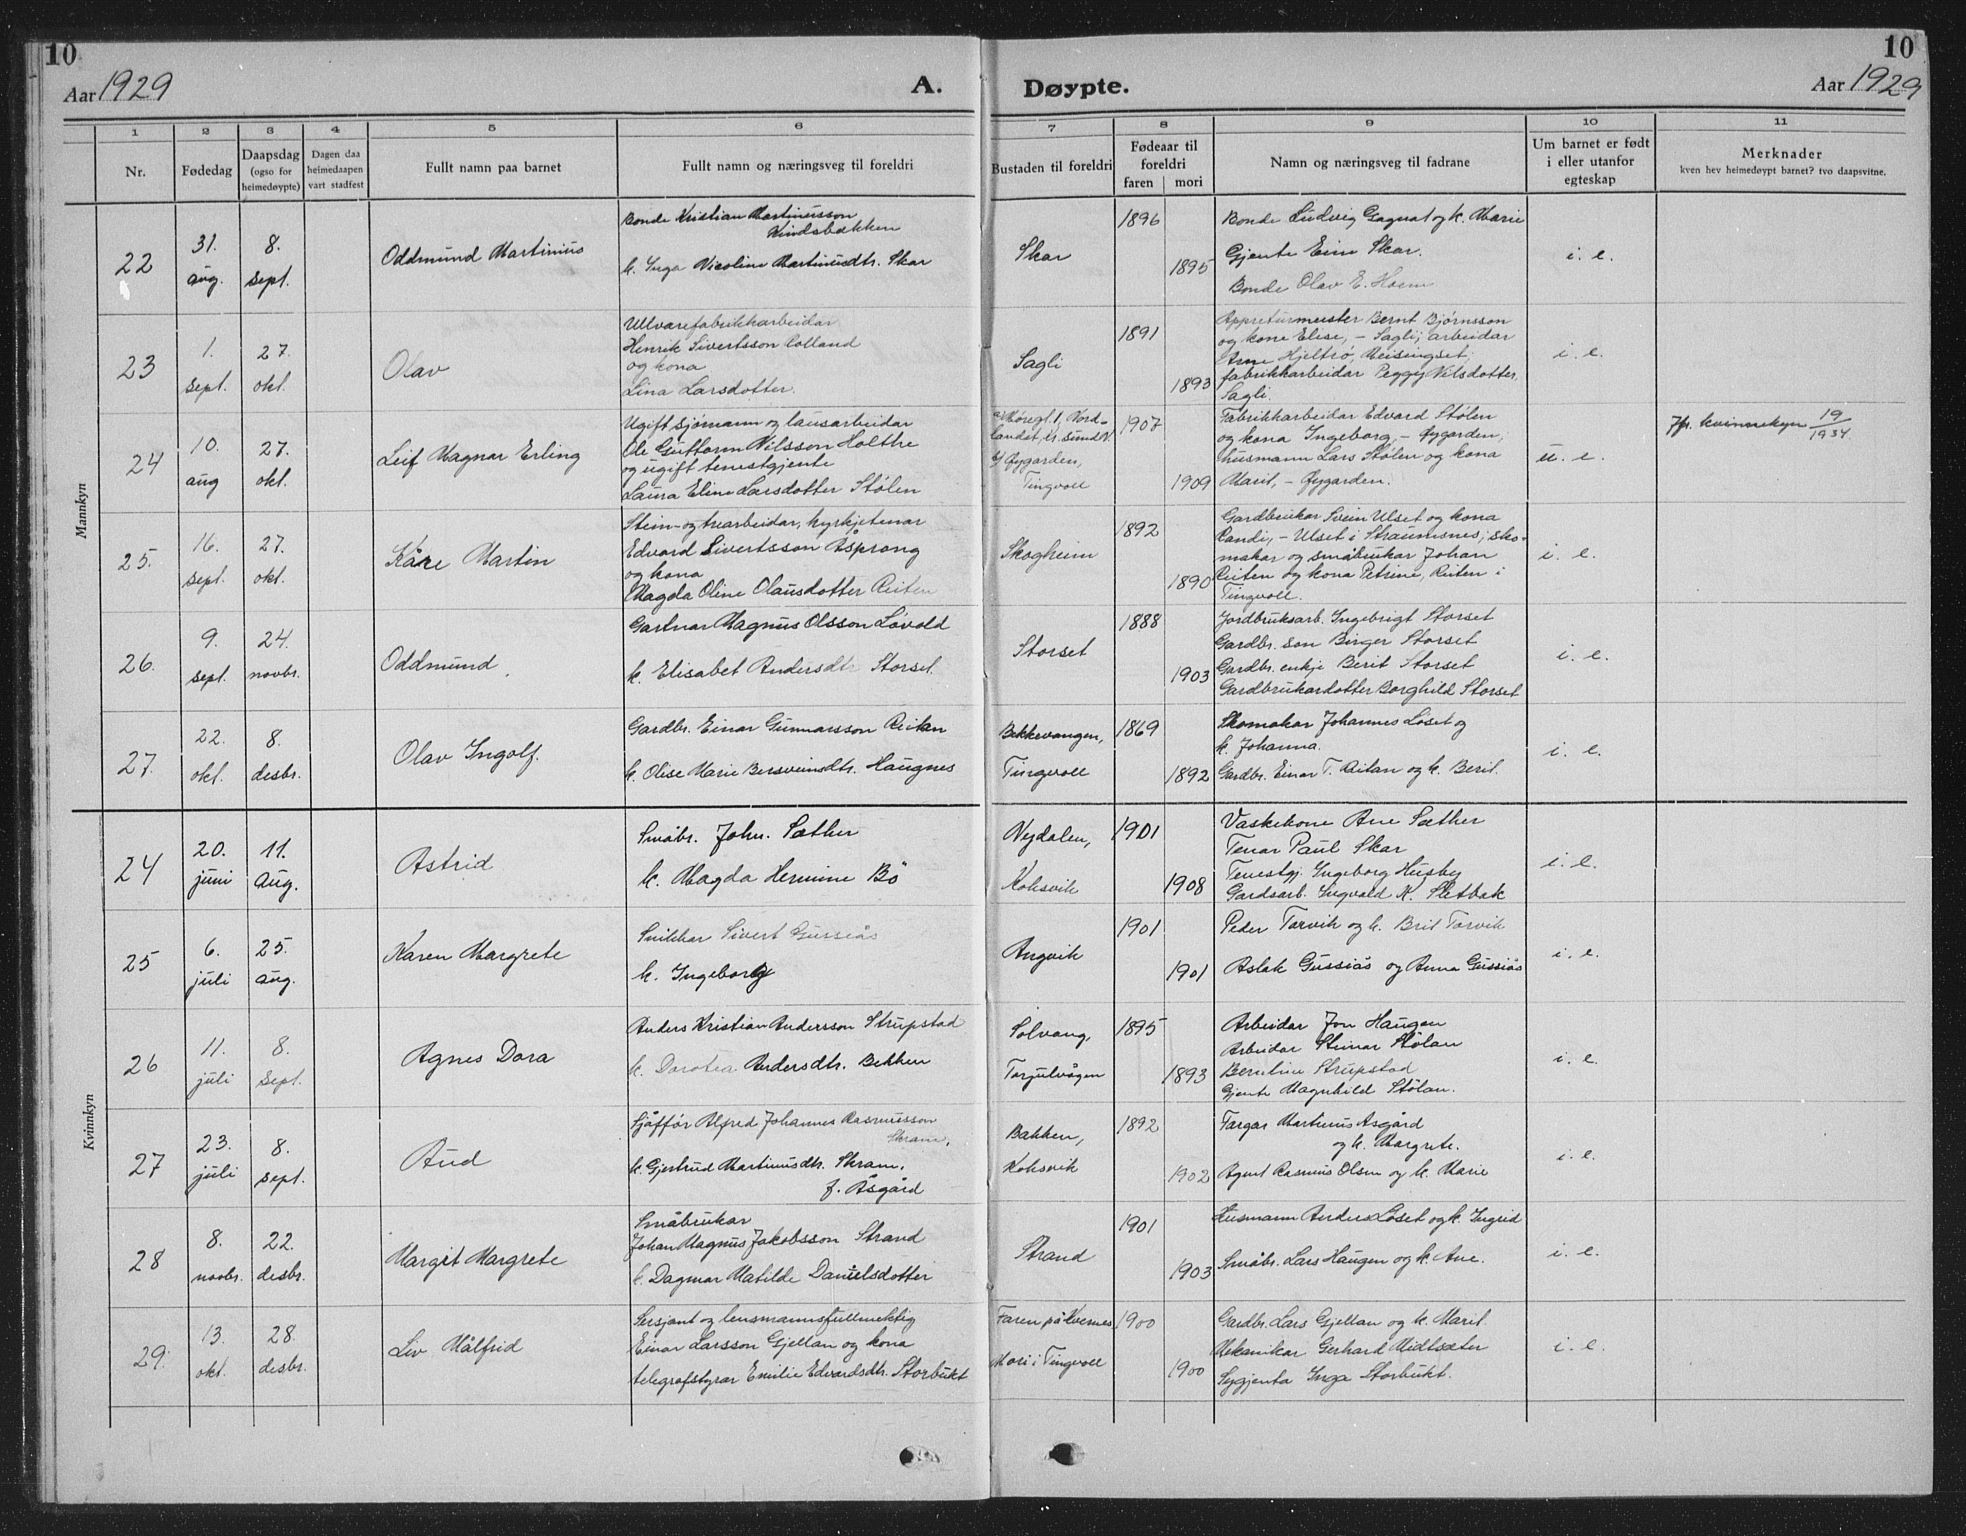 10
10
Aar 1929
A.
Døypte.
Aar 1929
1 2 3 4 5 6 7 8 9 10 11
Nr.
Fødedag
Daapsdag (ogso for heimedøypte)
Dagen daa heimedaapen vart stadfest
Fullt namn paa barnet
Fullt namn og næringsveg til foreldri
Bustaden til foreldri
Fødeaar til foreldri
faren mori
Namn og næringsveg til fadrane
Um barnet er født i eller utanfor egteskap
Merknader
kven hev heimedøypt barnet? tvo daapsvitne.
Mannkyn
22
31. aug.
8. sept.
Oddmund Martinius
Bonde Kristian Martinusson
Kindsbakken
k. Inga Nicoline Martinusdtr. Skar
Skar
1896
1895
Bonde Ludvig Gagnat og k. Marie
Gjente Eine Skar.
Bonde Olav E. Hoem
i. e.
23
1. sept.
27. okt.
Olav
Ullvarefabrikkarbeidar
Henrik Sivertsson Tolland
og kona
Lina Larsdotter.
Sagli
1891
1893
Appreturmeister Bernt Bjørnsson
og kone Elise, - Sagli; arbeidar
Arne Hjeltrø, Meisingset;
fabrikkarbeidar Peggy Nilsdotter,
Sagli.
i. e.
24
10. aug
27. okt.
Leif Magnar Erling
Ugift sjømann og lausarbeidar
Ole Guttorm Nilsson Holthe
og ugift tenestgjente
Laura Eline Larsdotter Stølen
a/ Møregt. 1, Nord-
landet, Kr.sund N.
b/ Øygarden,
Tingvoll
1907
1909
Fabrikkarbeidar Edvard Stølen
og kona Ingeborg, - Øygarden;
husmann Lars Stølen og kona
Marit, - Øygarden.
u. e.
Jfr. kvinnekyn 19/1934.
25.
16. sept.
27. okt.
Kåre Martin
Stein- og trearbeidar, kyrkjetenar
Edvard Sivertsson Åsprong
og kona
Magda Oline Olausdotter Reiten
Skogheim
1892
1890
Gardbrukar Svein Ulset og kona
Randi, - Ulset i Straumsnes; sko-
makar og småbrukar Johan
Reiten og kona Petrine, Reiten i
Tingvoll.
i. e.
26.
9. sept.
24. novbr.
Oddmund.
Gartnar Magnus Olsson Løvold
k. Elisabet Andersdtr. Storset.
Storset
1888
1903
Jordbruksarb. Ingebrigt Storset
Gardbr. son Birger Storset
Gardbr. enkje Berit Storset
Gardbrukardotter Borghild Storset
i. e.
27.
22. okt.
8. desbr.
Olav Ingolf.
Gardbr. Einar Gunnarsson Reitan
k. Olise Marie Bersveinsdtr. Haugnes
Bekkevangen,
Tingvoll
1869
1892
Skomakar Johannes Løset og
k. Johanna.
Gardbr. Einar T. Reitan og k. Berit.
i. e.
Kvinnkyn
24
20. juni
11. aug.
Astrid
Småbr. John. Sæther
k. Magda Hermine Bö
Nydalen,
Koksvik
1901
1908
Vaskekone Ane Sæther
Tenar Paul Skar
Tenestgj. Ingeborg Husby
Gardsarb. Ingvald K. Sletbak
i. e.
25
6. juli
25. aug.
Karen Margrete
Snikkar Sivert Gussiås
k. Ingeborg
Angvik
1901
1901
Peder Torvik og k. Brit Torvik
Aslak Gussiås og Anna Gussiås
i. e.
26
11. juli
8. sept.
Agnes Dora
Anders Kristian Andersson Strupstad
k. Dorotea Andersdtr. Bekken
Solvang,
Torjulvågen
1895
1893
Arbeidar Jon Haugen
Arbeidar Steinar Stølan
Berntine Strupstad
Gjente Magnhild Stølan.
i. e.
27
23. juli
8. sept.
Aud
Sjåffør Alfred Johannes Rasmusson
Skram,
k. Gjertrud Martinusdtr. Skram,
f. Åsgård
Bakken,
Koksvik
1892
1902
Fargar Martinus Åsgård
og k. Margrete.
Agent Rasmus Olsen og k. Marie
i. e.
28
8. novbr.
22. desbr.
Margit Margrete
Småbrukar
Johan Magnus Jakobsson Strand
k. Dagmar Matilde Danielsdotter
Strand
1901
1903
Husmann Anders Løset og k. Ingrid
Småbr. Lars Haugen og k. Ane.
i. e.
29.
13. okt.
28. desbr.
Liv Målfrid
Sersjant og lensmannsfullmektig
Einar Larsson Gjellan og kona
telegrafstyrar Emilie Edvardsdtr. Storbukt
Faren på Kvernes
Mori i Tingvoll
1900
1900
Gardbr. Lars Gjellan og k. Marit.
Mekanikar Gerhard Midtsæter
Sygjenta Inga Storbukt.
i. e.